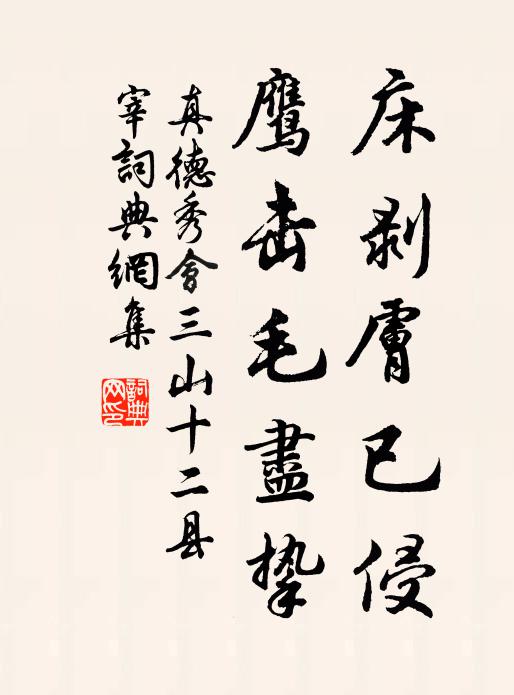 床剥膚已侵
鹰击毛盡挚
真德秀會三山十二县
宰詞典網集
詞典
网印